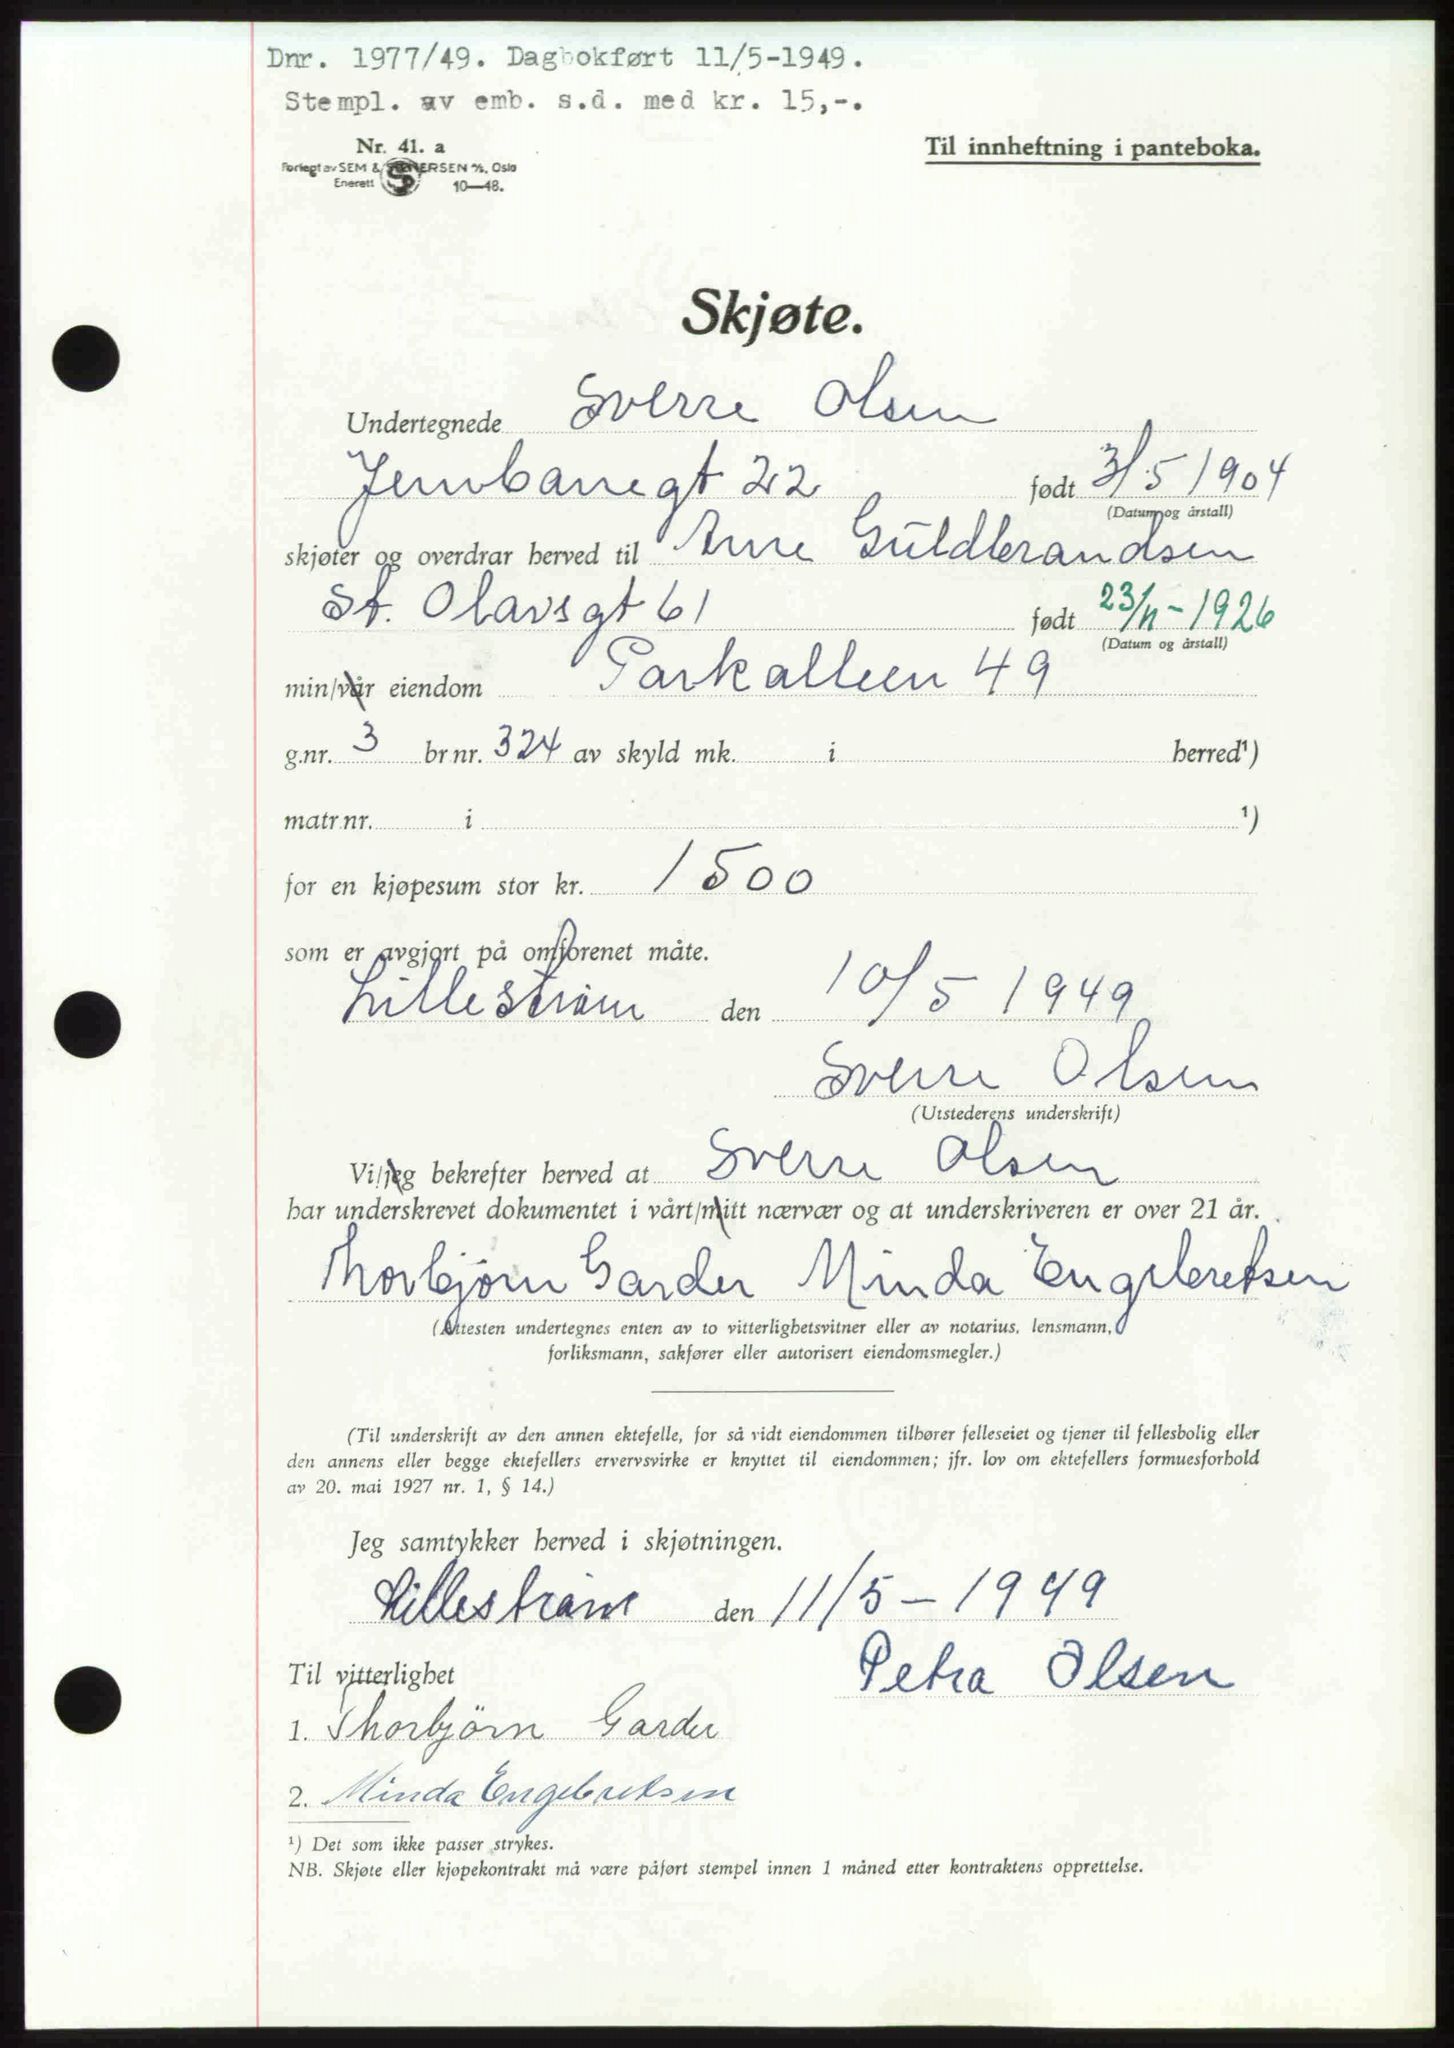 Dnr. 1977/49. Dagbokført 11/5-1949.
Stempl. av emb. s.d. med kr. 15,-.
Nr. 41. a
Til innheftning i panteboka.
Forlegt av SEM & STENERSEN A/S, Oslo
Enerett 10—48.
Skjøte.
Undertegnede Sverre Olsen
Jernbanegt 22 født 3/5 1904
(Datum og årstall)
skjøter og overdrar herved til Anne Guldbrandsen
St. Olavsgt 61 født 23/11-1926
(Datum og årstall)
min/vår eiendom Parkalleen 49
g.nr. 3 br nr. 324 av skyld mk. i herred¹)
matr.nr. i ¹)
for en kjøpesum stor kr. 1500
som er avgjort på omforenet måte.
Lillestrøm den 10/5 1949
Sverre Olsen
(Utstederens underskrift)
Vi/jeg bekrefter herved at Sverre Olsen
har underskrevet dokumentet i vårt/mitt nærvær og at underskriveren er over 21 år.
Thorbjørn Garder Minda Engebretsen
(Attesten undertegnes enten av to vitterlighetsvitner eller av notarius, lensmann,
forliksmann, sakfører eller autorisert eiendomsmegler.)
(Til underskrift av den annen ektefelle, for så vidt eiendommen tilhører felleseiet og tjener til fellesbolig eller
den annens eller begge ektefellers ervervsvirke er knyttet til eiendommen; jfr. lov om ektefellers formuesforhold
av 20. mai 1927 nr. 1, § 14.)
Jeg samtykker herved i skjøtningen.
Lillestrøm den 11/5-1949
Petra Olsen
Til vitterlighet
1. Thorbjørn Garder
2. Minda Engebretsen
¹) Det som ikke passer strykes.
NB. Skjøte eller kjøpekontrakt må være påført stempel innen 1 måned etter kontraktens opprettelse.